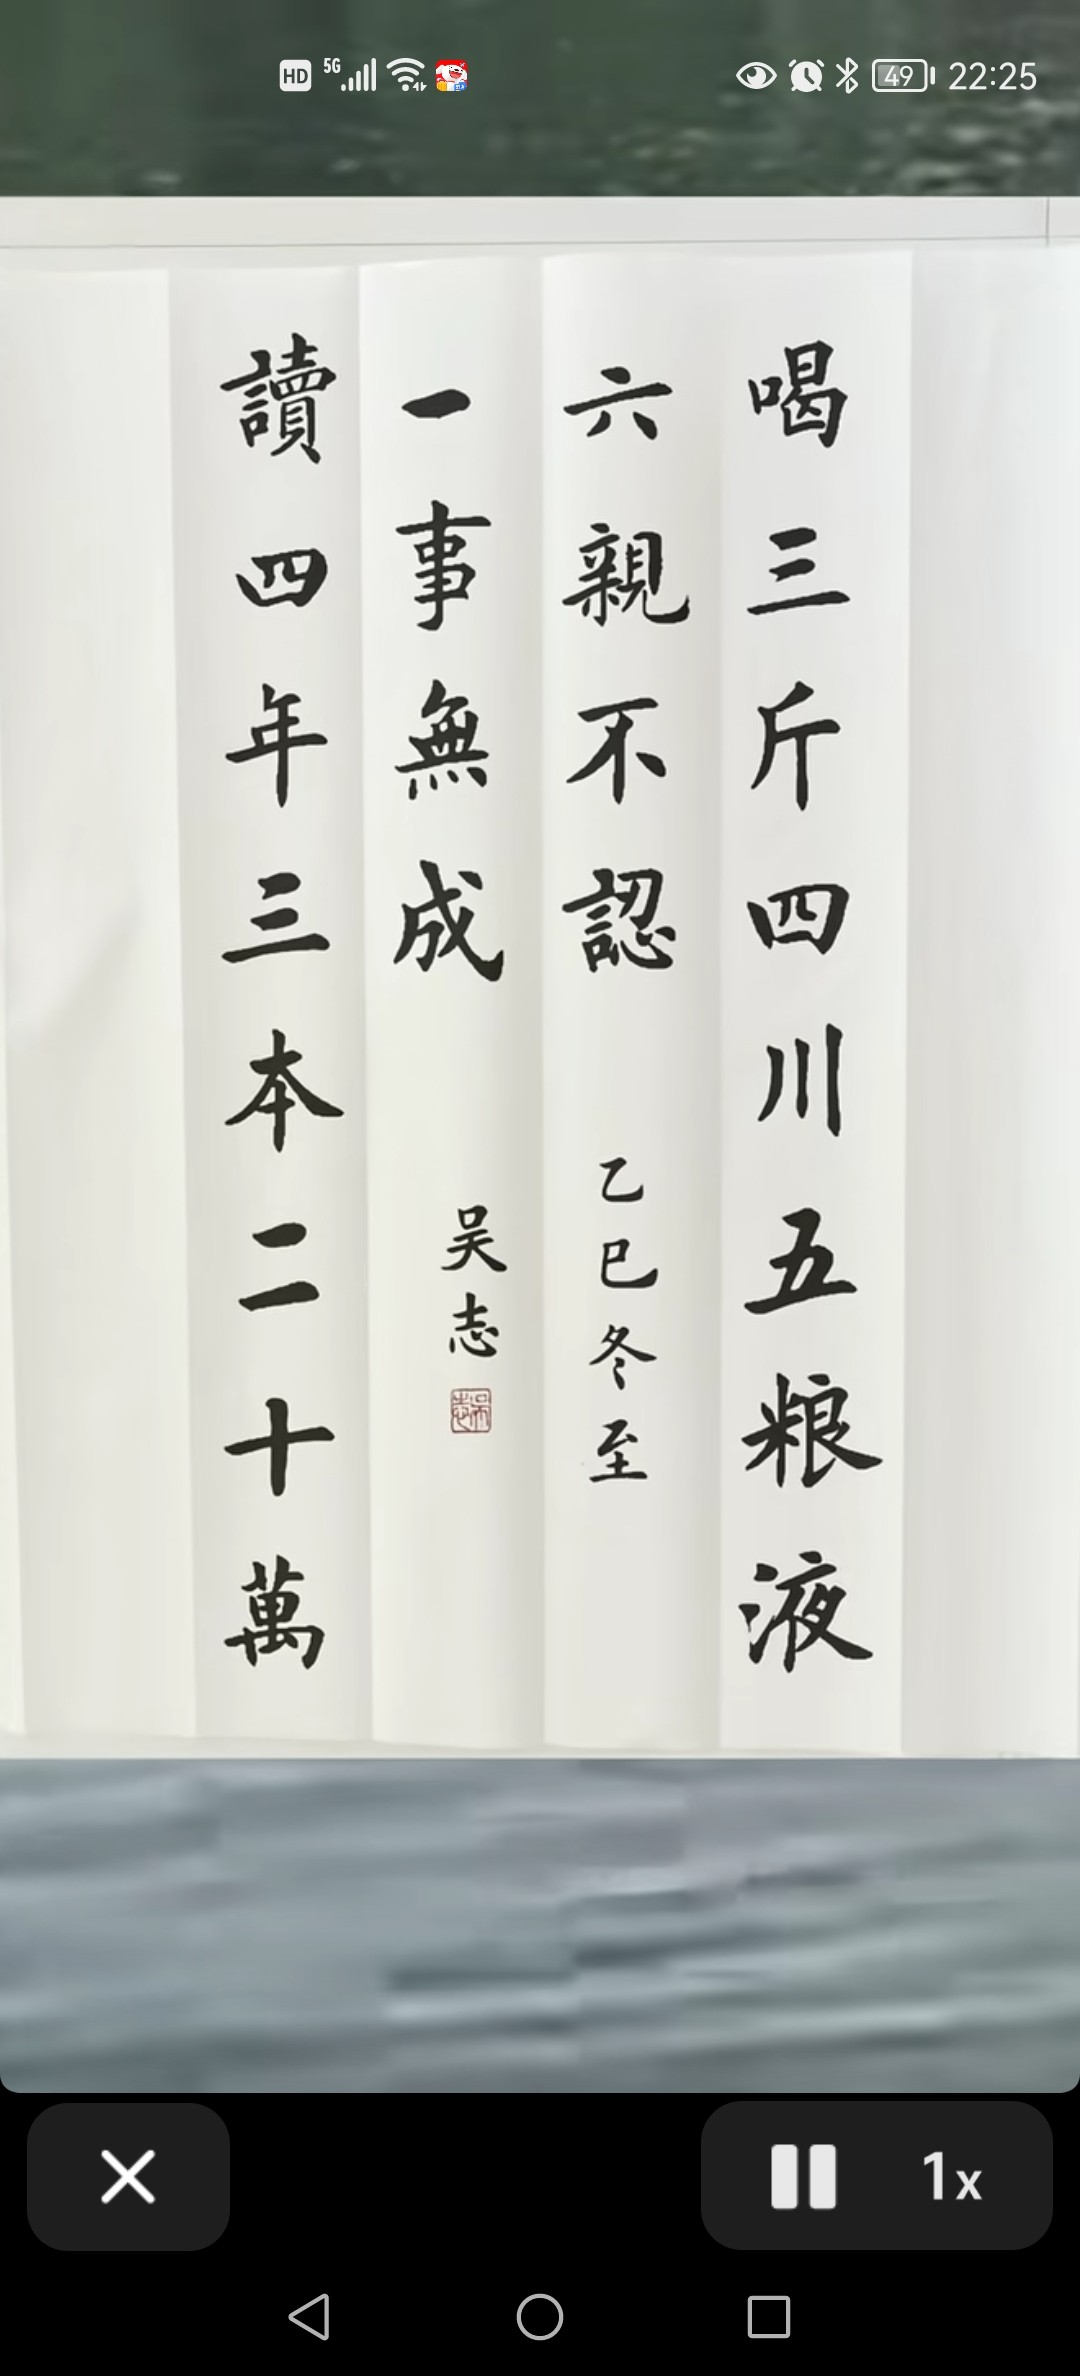 HD 5G 49 22:25
喝三斤四川五粮液
六親不認
乙巳冬至
一事無成
吴志
吴志
讀四年三本二十萬
1x